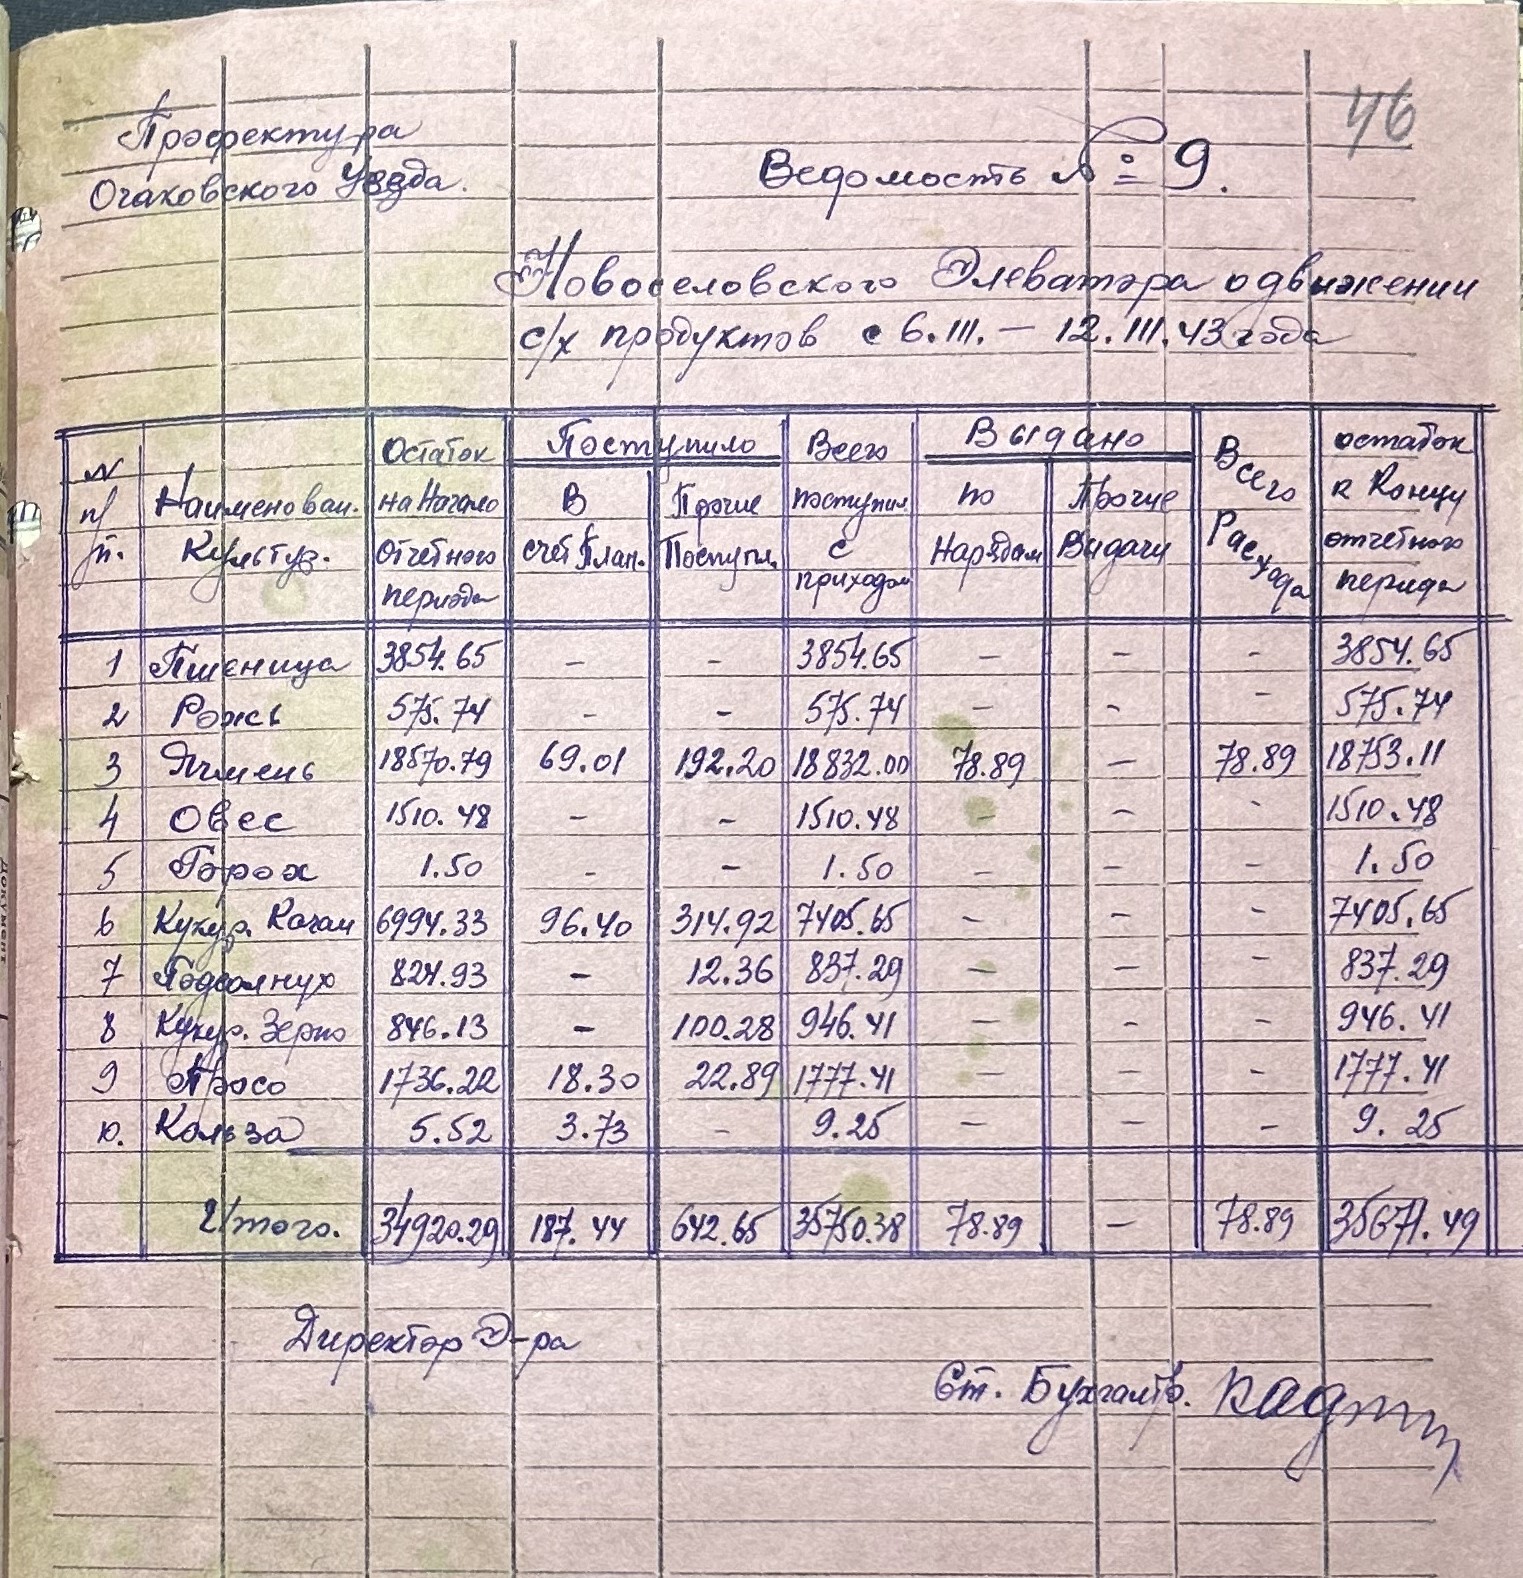 46
Префектура
Очаковского Уезда.
Ведомость № 9.
Новоселовского Элеватора о движении
с/х продуктов с 6.III. — 12.III.43 года
N п/п. | Наименован. Культур. | Остаток на Начало Отчетного периода | Поступило | Всего поступил. с приходом | Выдано | Всего Расхода | остаток к Концу отчетного периода
В счет План. | Прочие Поступл. | по Нарядам | Прочие Видачи
1 | Пшеница | 3854.65 | – | – | 3854.65 | – | – | – | 3854.65
2 | Рожь | 575.74 | – | – | 575.74 | – | – | – | 575.74
3 | Ячмень | 18570.79 | 69.01 | 192.20 | 18832.00 | 78.89 | – | 78.89 | 18753.11
4 | Овес | 1510.48 | – | – | 1510.48 | – | – | – | 1510.48
5 | Горох | 1.50 | – | – | 1.50 | – | – | – | 1.50
6 | Кукур. Качан | 6994.33 | 96.40 | 314.92 | 7405.65 | – | – | – | 7405.65
7 | Подсолнух | 824.93 | – | 12.36 | 837.29 | – | – | – | 837.29
8 | Кукур. Зерно | 846.13 | – | 100.28 | 946.41 | – | – | – | 946.41
9 | Просо | 1736.22 | 18.30 | 22.89 | 1777.41 | – | – | – | 1777.41
10. | Кольза | 5.52 | 3.73 | – | 9.25 | – | – | – | 9.25
Итого. | 34920.29 | 187.44 | 642.65 | 35750.38 | 78.89 | – | 78.89 | 35671.49
Директор Э-ра
Ст. Бухгалтр.
документ